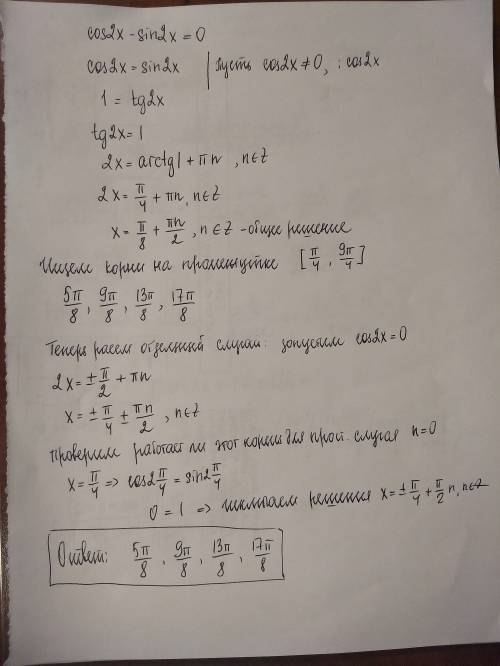 cos2x - sin2x = 0
cos2x = sin2x | пусть cos2x ≠ 0, : cos2x
1 = tg2x
tg2x = 1
2x = arctg1 + πn, n∈Z
2x = π/4 + πn, n∈Z
x = π/8 + πn/2, n∈Z - общее решение
Ищем корни на промежутке [π/4, 9π/4]
5π/8, 9π/8, 13π/8, 17π/8
Теперь расем отдельный случай: допустим cos2x = 0
2x = ± π/2 + πn
x = ± π/4 ± πn/2, n∈Z
Проверим работает ли этот корни для прост. случая n=0
x = π/4 => cos2π/4 = sin2π/4
0 = 1 => решения x = ± π/4 + π/2 n, n∈Z
Ответ: 5π/8, 9π/8, 13π/8, 17π/8